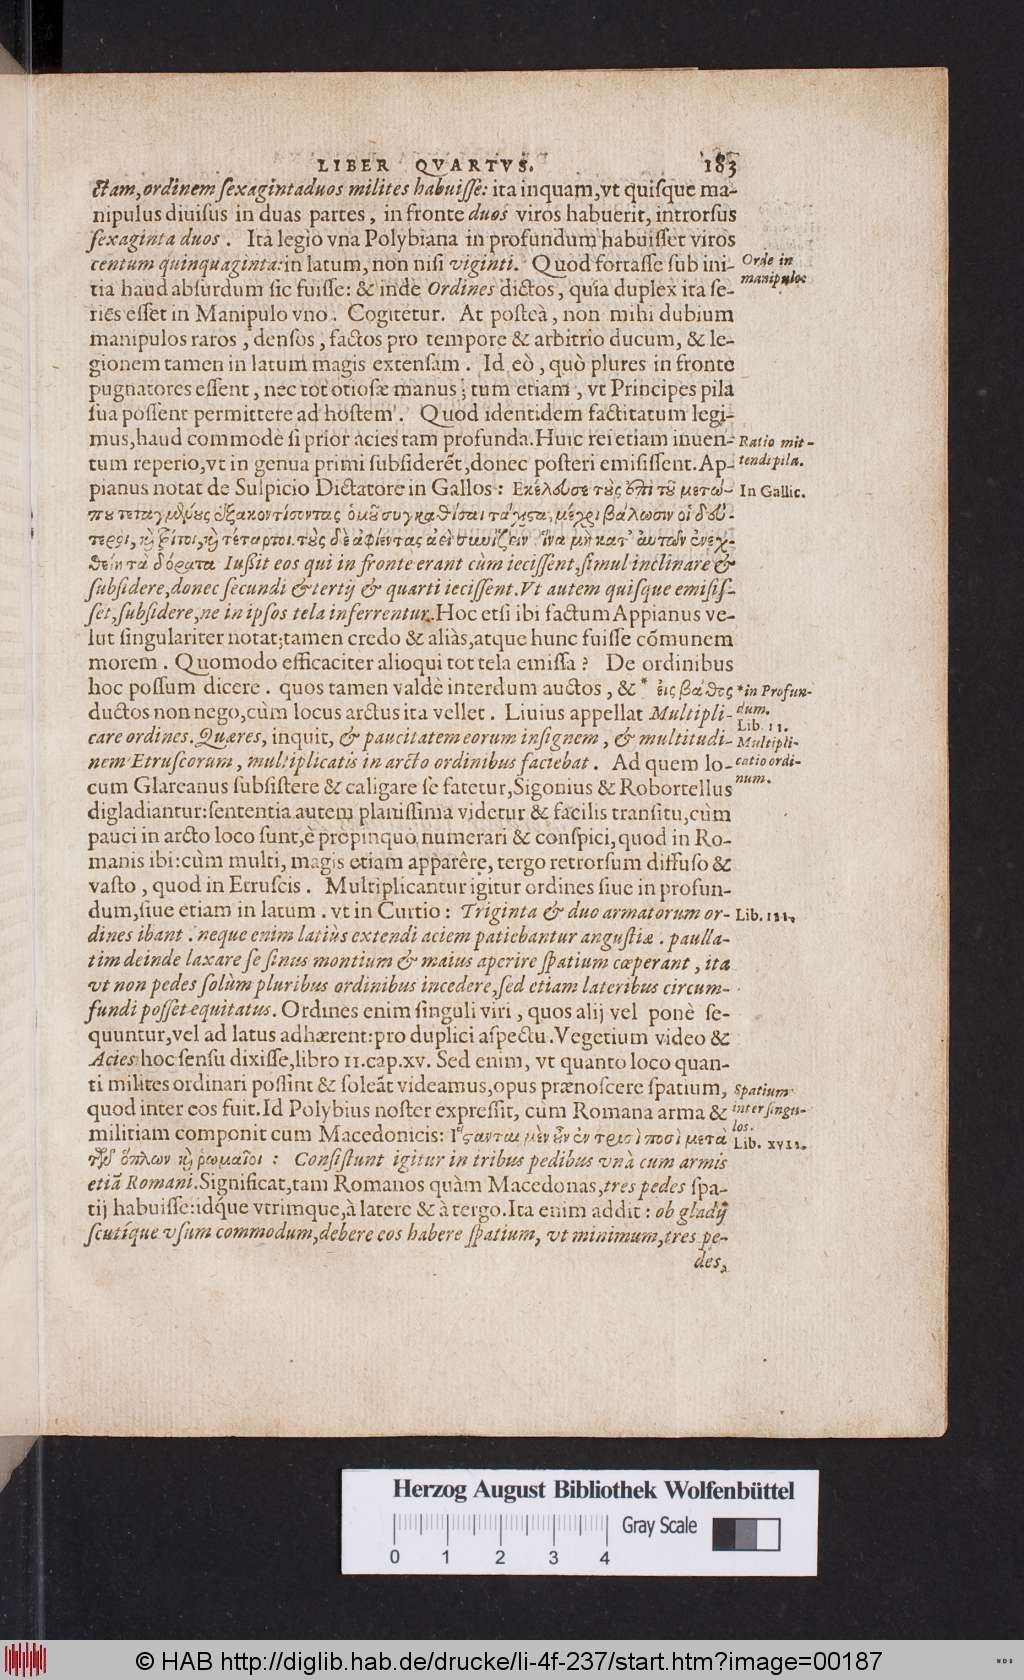 LIBER QVARTVS. 183
ctam, ordinem sexagintaduos milites habuisse: ita inquam, vt quisque ma-
nipulus diuisus in duas partes, in fronte duos viros habuerit, introrsus
sexaginta duos. Ita legio vna Polybiana in profundum habuisset viros
centum quinquaginta: in latum, non nisi viginti. Quod fortasse sub ini-
Orde in
manipulos
tia haud absurdum sic fuisse: & inde Ordines dictos, quia duplex ita se-
ries esset in Manipulo vno. Cogitetur. At posteà, non mihi dubium
manipulos raros, densos, factos pro tempore & arbitrio ducum, & le-
gionem tamen in latum magis extensam. Id eò, quò plures in fronte
pugnatores essent, nec tot otiosæ manus; tum etiam, vt Principes pila
sua possent permittere ad hostem. Quod identidem factitatum legi-
mus, haud commodè si prior acies tam profunda. Huic rei etiam inuen-
Ratio mit-
tendi pila.
tum reperio, vt in genua primi subsiderēt, donec posteri emisissent. Ap-
pianus notat de Sulpicio Dictatore in Gallos: Εκέλευσε τοὺς ἐπὶ τοῦ μετώ-
In Gallic.
που τεταγμένους ἐξακοντίσαντας ὁμοῦ συγκαθίσαι τάχιστα, μέχρι βάλωσιν οἱ δεύ-
τεροι, καὶ τρίτοι, καὶ τέταρτοι. τοὺς δὲ ἀφιέντας ἀεὶ συνίζειν ἵνα μὴ κατ' αὐτῶν ἐνεχ-
θείη τὰ δόρατα Iussit eos qui in fronte erant cùm iecissent, simul inclinare &
subsidere, donec secundi & tertij & quarti iecissent. Vt autem quisque emisis-
set, subsidere, ne in ipsos tela inferrentur. Hoc etsi ibi factum Appianus ve-
lut singulariter notat; tamen credo & aliàs, atque hunc fuisse cōmunem
morem. Quomodo efficaciter alioqui tot tela emissa? De ordinibus
hoc possum dicere. quos tamen valdè interdum auctos, &* εἰς βάθος
*in Profun-
dum.
ductos non nego, cùm locus arctus ita vellet. Liuius appellat Multipli-
Lib. II.
care ordines. Quæres, inquit, & paucitatem eorum insignem, & multitudi-
Multipli-
catio ordi-
num.
nem Etruscorum, multiplicatis in arcto ordinibus faciebat. Ad quem lo-
cum Glareanus subsistere & caligare se fatetur, Sigonius & Robortellus
digladiantur: sententia autem planissima videtur & facilis transitu, cùm
pauci in arcto loco sunt, è propinquo numerari & conspici, quod in Ro-
manis ibi: cùm multi, magis etiam apparêre, tergo retrorsum diffuso &
vasto, quod in Etruscis. Multiplicantur igitur ordines siue in profun-
dum, siue etiam in latum. vt in Curtio: Triginta & duo armatorum or-
Lib. III.
dines ibant. neque enim latiùs extendi aciem patiebantur angustiæ. paulla-
tim deinde laxare se sinus montium & maius aperire spatium cœperant, ita
vt non pedes solùm pluribus ordinibus incedere, sed etiam lateribus circum-
fundi posset equitatus. Ordines enim singuli viri, quos alij vel ponè se-
quuntur, vel ad latus adhærent: pro duplici aspectu. Vegetium video &
Acies hoc sensu dixisse, libro II. cap. XV. Sed enim, vt quanto loco quan-
ti milites ordinari possint & soleāt videamus, opus prænoscere spatium,
Spatium
inter singu-
los.
quod inter eos fuit. Id Polybius noster expressit, cùm Romana arma &
militiam componit cum Macedonicis: Ἵστανται μὲν οὖν ἐν τρισὶ ποσὶ μετὰ
Lib. XVII.
τῶν ὅπλων καὶ ῥωμαῖοι: Consistunt igitur in tribus pedibus vnà cum armis
etiā Romani. Significat, tam Romanos quàm Macedonas, tres pedes spa-
tij habuisse: idq́ue vtrimque, à latere & à tergo. Ita enim addit: ob gladij
scutíque vsum commodum, debere eos habere spatium, vt minimum, tres pe-
des,
Herzog August Bibliothek Wolfenbüttel
0 1 2 3 4
Gray Scale
© HAB http://diglib.hab.de/drucke/li-4f-237/start.htm?image=00187